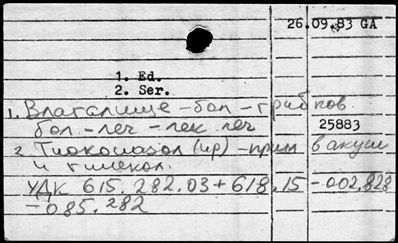 26.09.83 GA
1. Ed.
2. Ser.
1. Влагалище - бол - грибков.
бол - леч - лек. леч
25883
2. Тиоконазол (пр) - прим в акуш
и гинекол.
УДК 615.282.03+618.15-002.828
-085.282